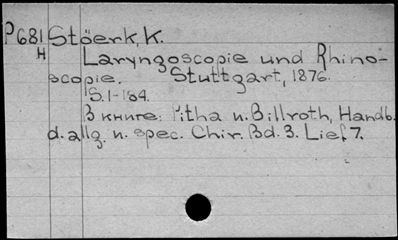 P681 Stöerk, K.
H Laryngoscopie und Rhino-
scopie. Stuttgart, 1876.
S.1-184.
В книге: Pitha u. Billroth, Handb.
d. allg. u. spec. Chir. Bd. 3. Lief. 7.